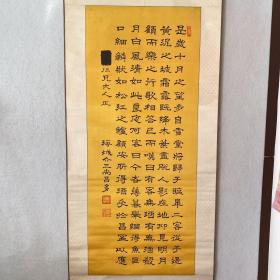 是歲十月之望步自雪堂將歸于臨皋二客從予過
黃泥之坂霜露既降木葉盡脫人影在地仰見明月
顧而樂之行歌相答已而嘆曰有客無酒有酒無殽
月白風清如此良夜何客曰今者薄暮舉網得魚巨
口細鱗狀如松江之鱸顧安所得酒乎以應
仁兄大人正
介三尚昌